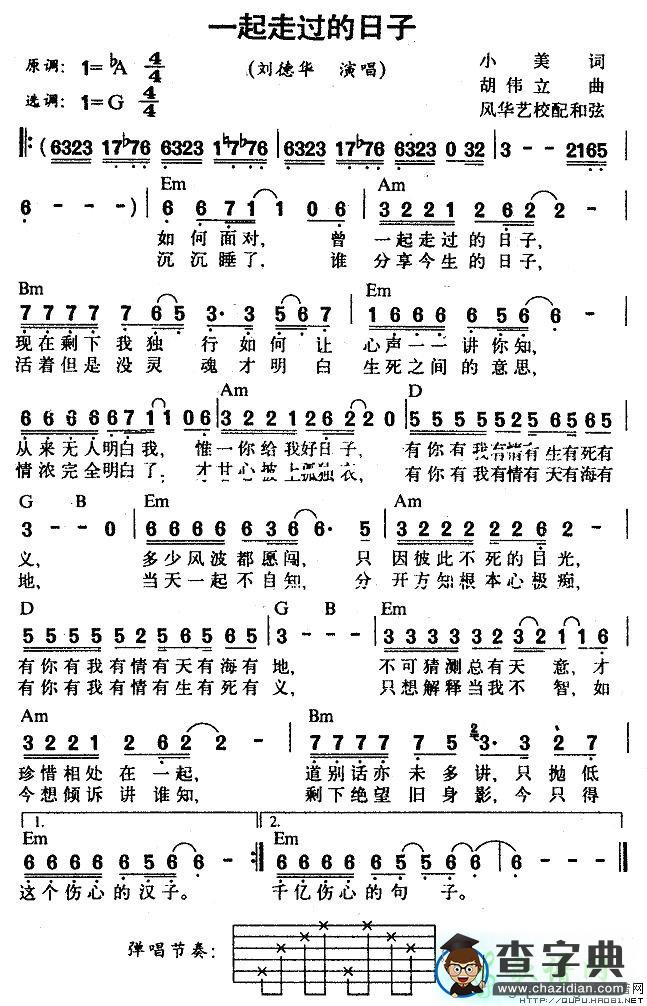 一起走过的日子
原调：1=ᵇA 4/4 (刘德华 演唱) 小美 词
胡伟立 曲
选调：1=G 4/4 风华艺校配和弦
‖:(6323 17ᵇ76 6323 1♮7ᵇ76 | 6323 17ᵇ76 6323 0 32 | 3 - - 2165 |
Em Am
6 - - -) | 6 6 71 1 0 6 | 3 2 2 1 2 62 2 - |
如何面对，曾 一起走过的日子，
沉沉睡了，谁 分享今生的日子，
Bm Em
7 7 7 7 7 65 3· 3 5 6 7 | 1 6 6 6 6 56 6 - |
现在剩下我独 行如何让 心声一一讲你知，
活着但是没灵 魂才明白 生死之间的意思，
Am D
6 6 6 6 671 1 0 6 | 3 2 2 1 262 2 0 | 5 5 5 5 5 2 5 65 65 |
从来无人明白我，惟一你给我好日子，有你有我有情有生有死有
情浓完全明白了，才甘心披上孤独衣，有你有我有情有天有海有
G B Em Am
3 - - 0 | 6 6 6 6 6 36 6· 5 | 3 2 2 2 2 2 6 2 - |
义，多少风波都愿闯，只 因彼此不死的目光，
地，当天一起不自知，分 开方知根本心极痴，
D G B Em
5 5 5 5 5 2 5 6 5 65 | 3 - - - | 3 3 3 3 3 2 3 2 1 1 6 |
有你有我有情有天有海有 地，不可猜测总有天 意，才
有你有我有情有生有死有 义，只想解释当我不 智，如
Am Bm
3 2 2 1 2 62 2 - | 7 7 7 7 7 5 3· 3 2 7 |
珍惜相处在一起，道别话亦未多讲，只抛低
今想倾诉讲谁知，剩下绝望旧身影，今只得
1. 2.
Em Em
6 6 6 6 6 56 6 - :‖ 6 6 6 6 6 5 5 6 6 - | 6 - - - ‖
这个伤心的汉子。千亿伤心的句 子。
弹唱节奏：
查字典
www.chazidian.com
http://QUPU.HAO81.NET